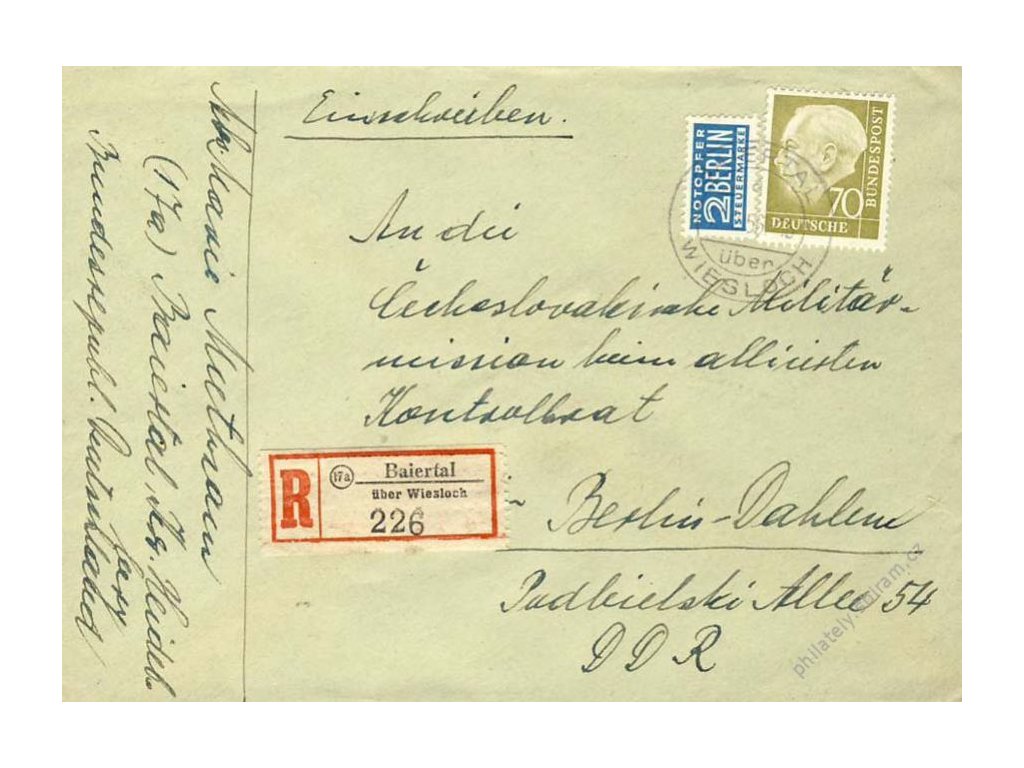 Einschreiben.
NOTOPFER
2 BERLIN
STEUERMARKE
70
DEUTSCHE
BUNDESPOST
über
WIESLOCH
An die
Čechoslovakische Militär-
mission beim alliierten
Kontrollrat
Berlin-Dahlem
Podbielski Allee 54
DDR
R
17a
Baiertal
über Wiesloch
226
Marie
(17a) Baiertal, Kr. Heidel-
berg
Bundesrepubl. Deutschland
philately.
.cz